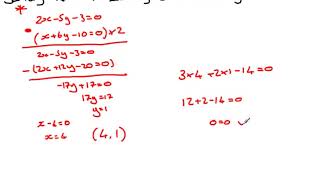 *
2x-5y-3=0
(x+6y-10=0)×2
2x-5y-3=0
-(2x+12y-20=0)
-17y+17=0
17y=17
y=1
x-4=0
x=4
(4,1)
3×4+2×1-14=0
12+2-14=0
0=0 ✓